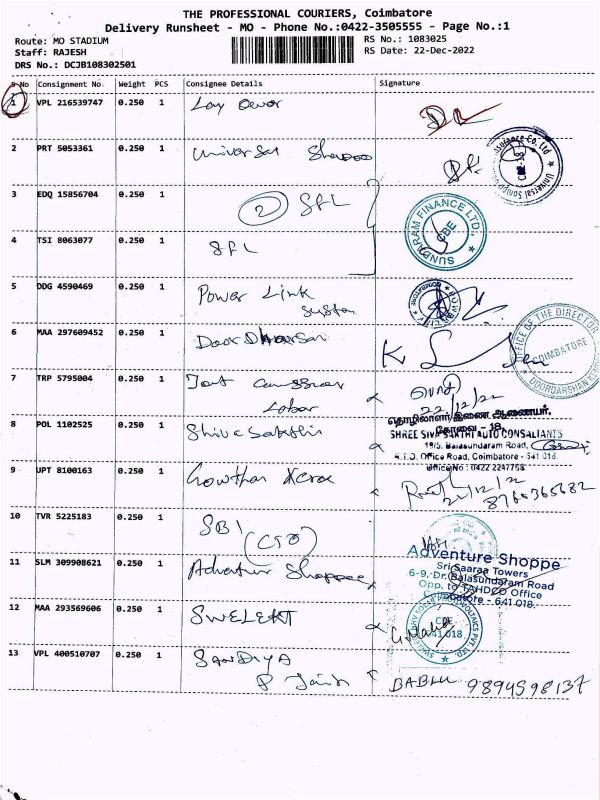 THE PROFESSIONAL COURIERS, Coimbatore
Delivery Runsheet - MO - Phone No.:0422-3505555 - Page No.:1
Route: MO STADIUM
RS No.: 1083025
Staff: RAJESH
RS Date: 22-Dec-2022
DRS No.: DCJB108302501
S No Consignment No. Weight PCS Consignee Details Signature
1 VPL 216539747 0.250 1
2 PRT 5053361 0.250 1 Universal
3 EDQ 15856704 0.250 1 2 SFL
SUNDARAM FINANCE LTD., CBE
4 TSI 8063077 0.250 1 SFL
5 DDG 4590469 0.250 1 Power Link
System
6 MAA 297609452 0.250 1 Door Dharsan
OFFICE OF THE DIRECTOR COIMBATORE DOORDARSHAN
7 TRP 5795004 0.250 1 Joint
22/12/22
Labor
தொழிலாளர் இணை ஆணையர்,
கோவை - 18.
8 POL 1102525 0.250 1 Shiva Sakthi
SHREE SIVA SAKTHI AUTO CONSALTANTS
19/5, Balasundaram Road,
R.T.O. Office Road, Coimbatore - 641 018.
Office No : 0422 2247758
9 UPT 8100163 0.250 1 Gowtham Xerox
22/12/22
8765365682
10 TVR 5225183 0.250 1 SBI
Adventure Shoppe
Sri Saaraa Towers
6-9, Dr. Balasundaram Road
Opp. to TAHDCO Office
Coimbatore - 641 018.
11 SLM 309908621 0.250 1 Adventure Shoppee
12 MAA 293569606 0.250 1 SWELEKT
CBE
641 018
13 VPL 400510707 0.250 1 SANDIYA
P Jain
BABLU 9894598137